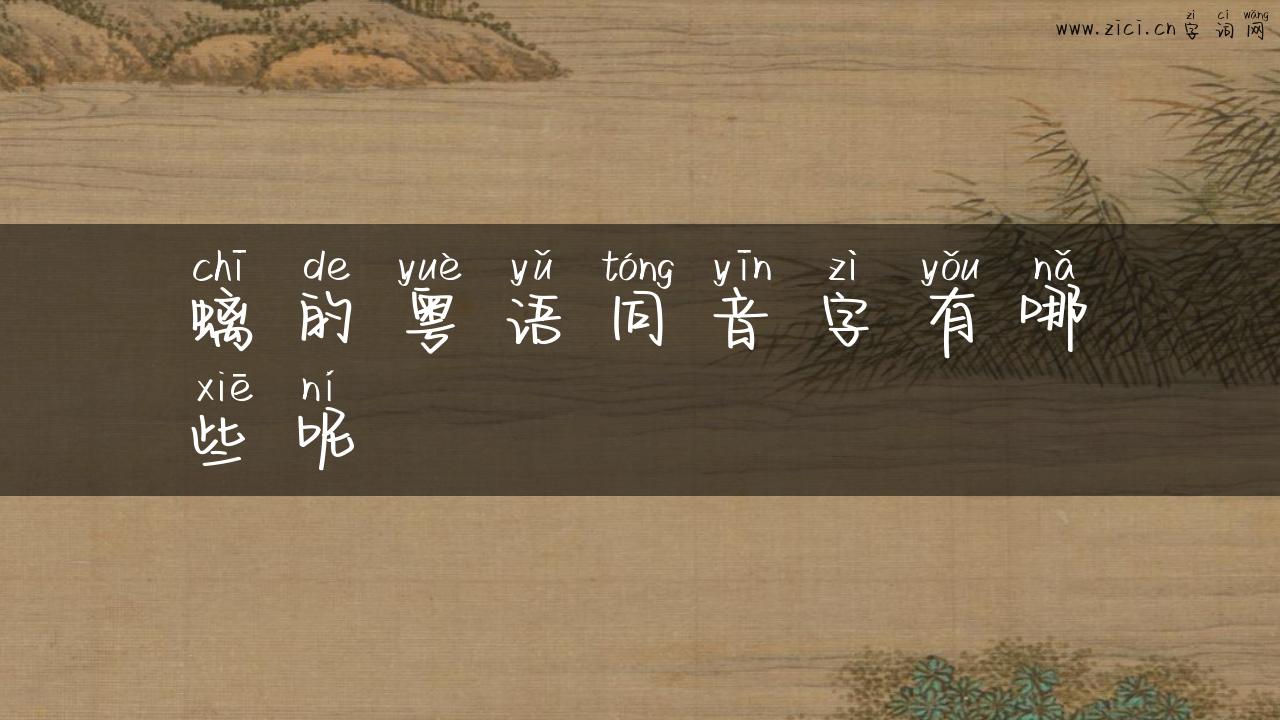 zì cí wǎng
www.zici.cn 字 词 网
chī de yuè yǔ tóng yīn zì yǒu nǎ
螭 的 粤 语 同 音 字 有 哪
xiē ní
些 呢